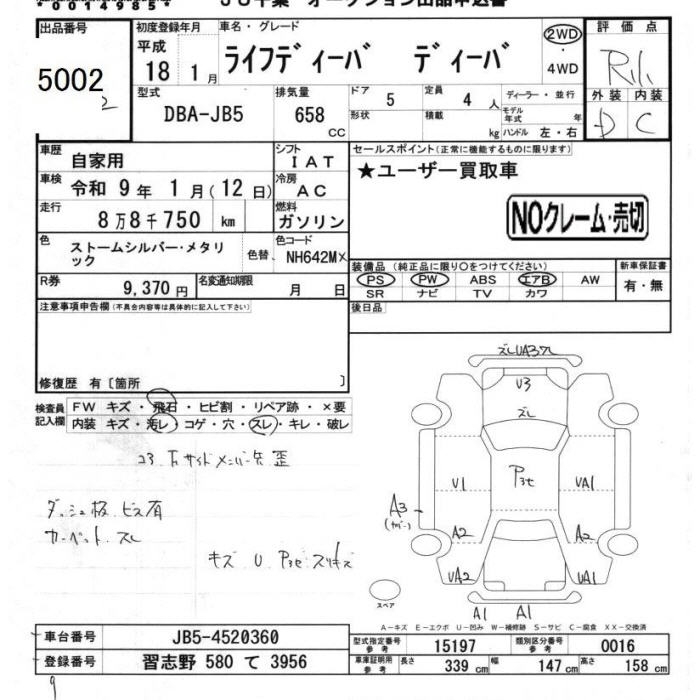 出品番号
5002
2
初度登録年月
平成
18 1月
車名・グレード
ライフディーバ ディーバ
2WD
・
4WD
評価点
R
外装 内装
D C
型式
DBA-JB5
排気量
658
CC
ドア
5
形状
定員
4人
積載
kg
ディーラー・並行
モデル年式 年
ハンドル 左・右
車歴
自家用
シフト
IAT
車検
令和 9年 1月(12日)
冷房
AC
走行
8万8千750 km
燃料
ガソリン
色
ストームシルバー・メタリック
色替
色コード
NH642M
R券
9,370円
名変通知期限
月 日
セールスポイント(正常に機能するものに限ります)
★ユーザー買取車
NOクレーム・売切
装備品(純正品に限り○をつけてください)
PS PW ABS エアB AW
SR ナビ TV カワ
新車保証書
有・無
後日品
注意事項申告欄(不具合内容等は具体的に記入して下さい)
修復歴 有〔箇所 〕
検査員記入欄
FW キズ・飛石・ヒビ割・リペア跡・×要
内装 キズ・汚レ・コゲ・穴・スレ・キレ・破レ
コヨ 右サイドメンバー先 歪
ダッシュ板 ビス有
カーペット スレ
キズ U P3セ スリキズ
U3
スレ
U1
P3セ
UA1
A3
A2
A2
UA2
UA1
A1
A1
スペア
A-キズ E-エクボ U-凹み W-補修跡 S-サビ C-腐食 XX-交換済
車台番号
JB5-4520360
登録番号
習志野 580 て 3956
型式指定番号
参考
15197
類別区分番号
参考
0016
車庫証明用
参考
長さ
339 cm
幅
147 cm
高さ
158 cm
9